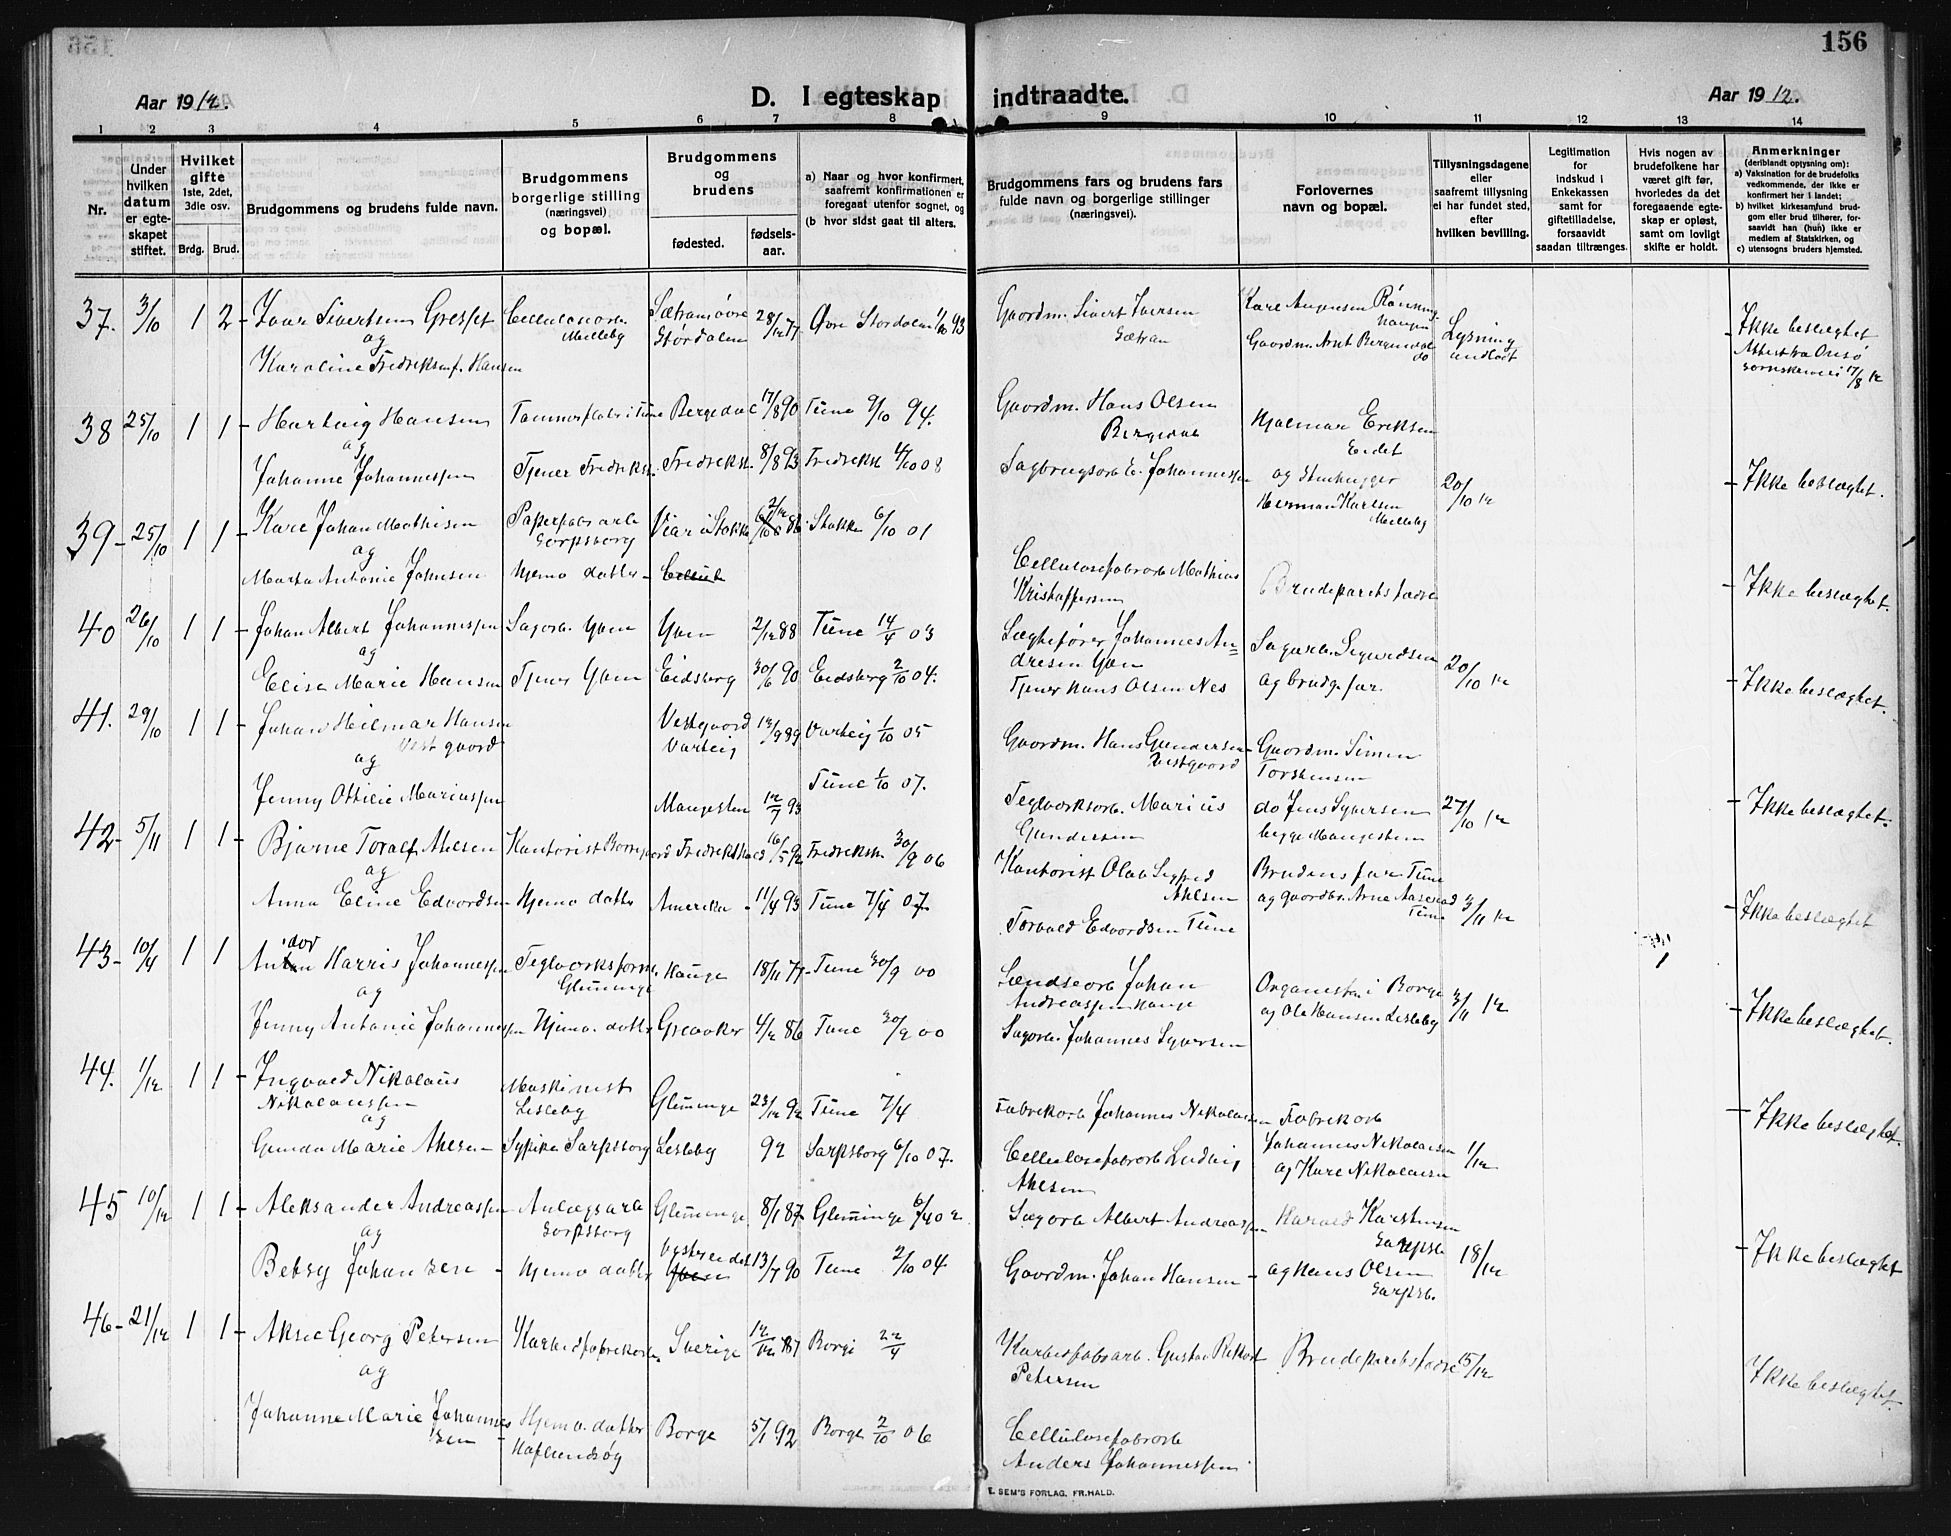 156
Aar 1912.
D. I egteskap indtraadte.
Aar 1912.
1 2 3 4 5 6 7 8 9 10 11 12 13 14
Nr.
Under hvilken datum er egteskapet stiftet.
Hvilket gifte 1ste, 2det, 3dle osv.
Brdg. Brud.
Brudgommens og brudens fulde navn.
Brudgommens borgerlige stilling (næringsvei) og bopæl.
Brudgommens og brudens
fødested.
fødselsaar.
a) Naar og hvor konfirmert, saafremt konfirmationen er foregaat utenfor sognet, og (b hvor sidst gaat til alters.
Brudgommens fars og brudens fars fulde navn og borgerlige stillinger (næringsvei).
Forlovernes navn og bopæl.
Tillysningsdagene eller saafremt tillysning ei har fundet sted, efter hvilken bevilling.
Legitimation for indskud i Enkekassen samt for giftetilladelse, forsaavidt saadan tiltrænges.
Hvis nogen av brudefolkene har været gift før, hvorledes da det foregaaende egteskap er opløst, samt om lovligt skifte er holdt.
Anmerkninger (deriblandt oplysning om): a) Vaksination for de brudefolks vedkommende, der ikke er konfirmert her i landet; b) hvilket kirkesamfund brudgom eller brud tilhører, forsaavidt han (hun) ikke er medlem af Statskirken, og c) utensogns bruders hjemsted.
37. 3/10 1 2 - Ivar Sivertsen Gresset
og
Karoline Fredriksenf. Hansen
Cellulosearb. Melleby
Sætran øvre Stördalen 28/12 77 Øvre Stordalen 1/10 93
Gaardm. Sivert Iversen Sætran
Gaardm. Arnt Bergendal
Lysning undladt
Ikke beslægtet
38 25/10 1 1 - Hartvig Hansen
og
Johanne Johannessen
Bergedal 17/8 90 Tune 9/10 94.
Tjener Fredrikst. Fredrikst. 8/8 93 Fredrikst 4/10 08
Gaardm. Hans Olsen Bergedal
Sagbrugsarb. E. Johannessen
Hjalmar Eriksen Eidet
og Stenhugger Herman Karlsen Melleby
20/10 12
Ikke beslægtet.
39- 25/10 1 1 - Kare Johan Mathisen
og
Marta Antonie Johnsen
Papirfabr arb Sarpsborg
Hjemv datter -
Stokke 6/10 01
Cellulosefabrarb Mathias Kristoffersen
Brudeparets fædre
Ikke beslægtet.
40 26/10 1 1 - Johan Albert Johannessen
og
Elise Marie Hansen
Sagarb. Yven Yven 2/12 88 Tune 14/4 03
Tjener Yven Eidsberg 30/6 90 Eidsberg 2/10 04.
Johannes Andresen Yven
Tjener Hans Olsen Nes
Sagarb. Sigurdsen og brudg. far.
20/10 12
Ikke beslægtet.
41. 29/10 1 1 - Johan Hilmar Hansen Vestgaard
og
Jenny Ottilie Mariussen
Vestgaard Varteig 13/9 89 Varteig 1/10 05
Mangesten 12/7 93 Tune 1/10 07.
Gaardm. Hans Gundersen Vestgaard
Teglverksarb. Marius Gundersen
Gaardm. Simen Torstensen
do Jens Syversen begge Mangesten
27/10 12
Ikke beslægtet.
42- 5/11 1 1 - Bjarne Toralf Ahlsen
og
Anna Eline Edvardsen
Kontorist Borregaard Fredrikstad 16/5 92 Fredrikst 30/9 06
Hjemv datter Amerika - 11/4 93 Tune 7/4 07
Kontorist Olab Sigfred Ahlsen
Torvald Edvardsen Tune
Brudens far Tune
og gaardbr. Arne Aaserud Tune
3/11 12
Ikke beslægtet
43- 10/11 1 1 - Andor Harris Johannessen
og
Jenny Antonie Johannessen
Teglverksform. Glemminge
Hauge 18/11 77 - Tune 30/9 00
Hjemv. datter Greaaker 4/12 86 Tune 30/9 00
Johan Andreassen Hauge
Sagarb. Johannes Syversen
Organisten i Borge
og Ole Hansen Lisleby
3/11 12
Ikke beslægtet.
44. 1/12 1 1 - Ingvald Nikolaus Nikolaussen
og
Gunda Marie Ahlsen
Maskinist Lisleby
Glemminge 23/12 92 Tune 7/4
Sypike Sarpsborg Lisleby 92 Sarpsborg 6/10 07.
Fabrikarb Johannes Nikolaisen
Cellulosefabrarb Ludvig Ahlsen
Fabrikarb Johannes Nikolaisen
og Kare Nikolaisen
1/12
Ikke beslægtet.
45 10/12 1 1 - Aleksander Andreassen
og
Betsy Johansen -
Anlægsarb Sarpsborg
Glemminge 8/1 87 Glemminge 6/4 02
Hjemv datter 13/7 90 Tune 2/10 04.
Sagarb Albert Andreassen
Gaardm. Johan Hansen -
Harald Karstensen Sarpsb.
og Hans Olsen Sarpsb.
18/12
Ikke beslægtet
46- 21/12 1 1 - Aksel Georg Petersen
og
Johanne Marie Johannessen
Karbidfabrikarb. Sverige 12/12 87 Borge 22/4
Hjemv. datter Hafslundsøg Borge 5/1 92 Borge 2/10 06
Karbidfabrarb. Gustav Rikart Petersen
Cellulosefabrarb Anders Johannessen
Brudeparets fædre 15/12
Ikke beslægtet.
E. SEM'S FORLAG, FR.HALD.